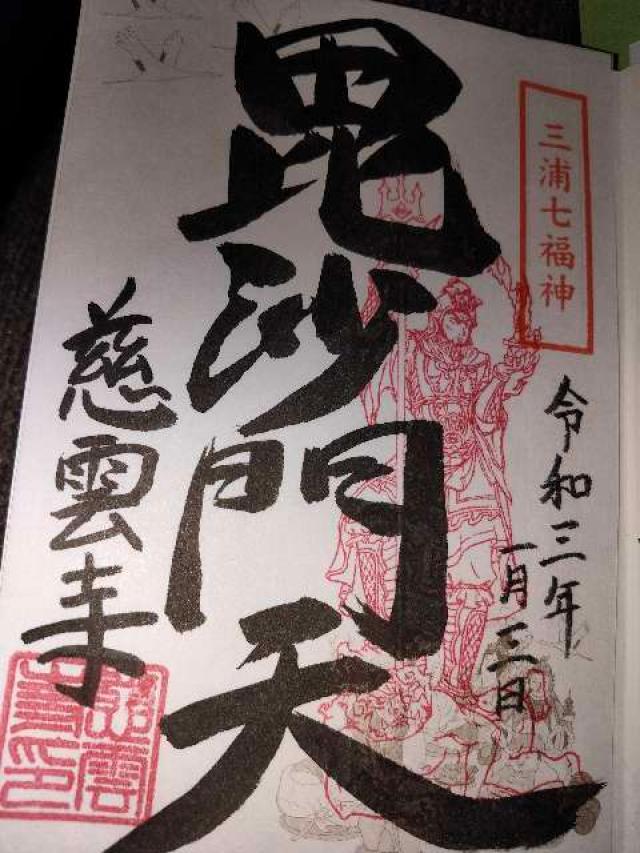 三浦七福神
令和三年
一月三日
毘沙門天
慈雲寺